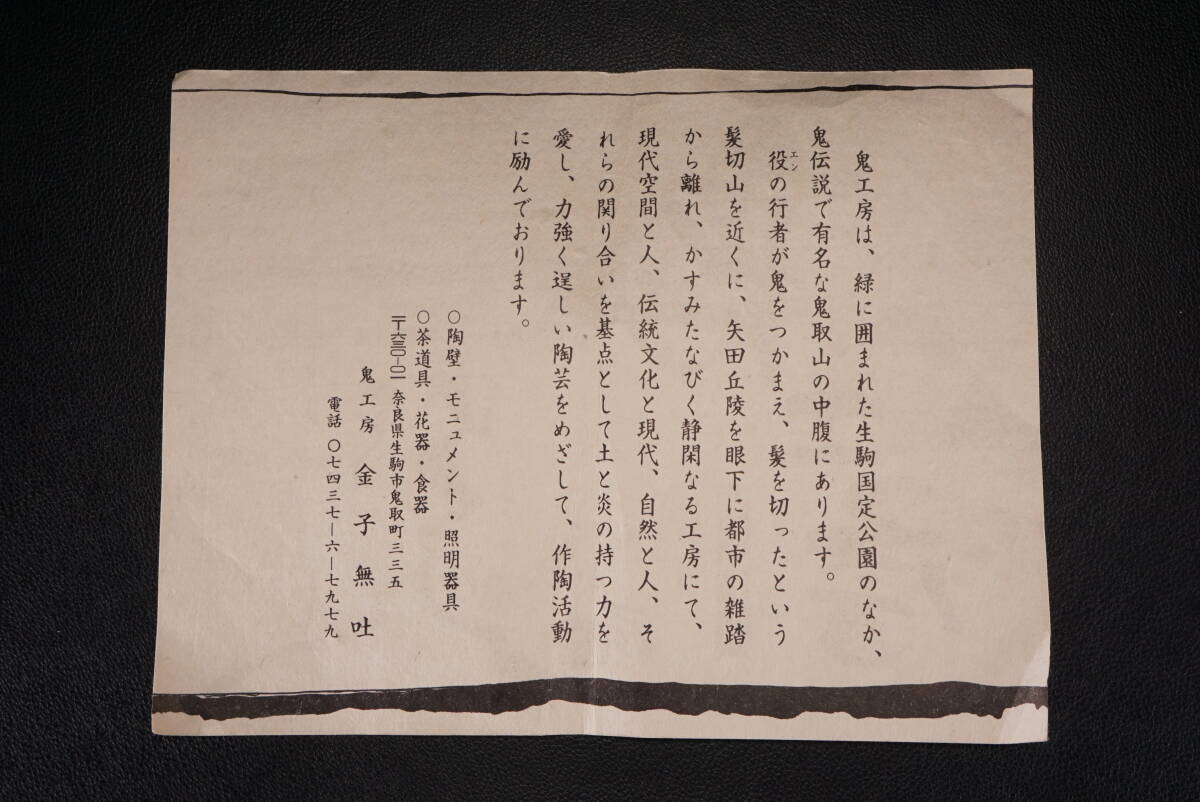 鬼工房は、緑に囲まれた生駒国定公園のなか、
鬼伝説で有名な鬼取山の中腹にあります。
役の行者が鬼をつかまえ、髪を切ったという
エン
髪切山を近くに、矢田丘陵を眼下に都市の雑踏
から離れ、かすみたなびく静閑なる工房にて、
現代空間と人、伝統文化と現代、自然と人、そ
れらの関り合いを基点として土と炎の持つ力を
愛し、力強く逞しい陶芸をめざして、作陶活動
に励んでおります。
○陶壁・モニュメント・照明器具
○茶道具・花器・食器
〒六三〇-〇一 奈良県生駒市鬼取町三三五
鬼工房 金子無吐
電話 〇七四三七-六-七九七九